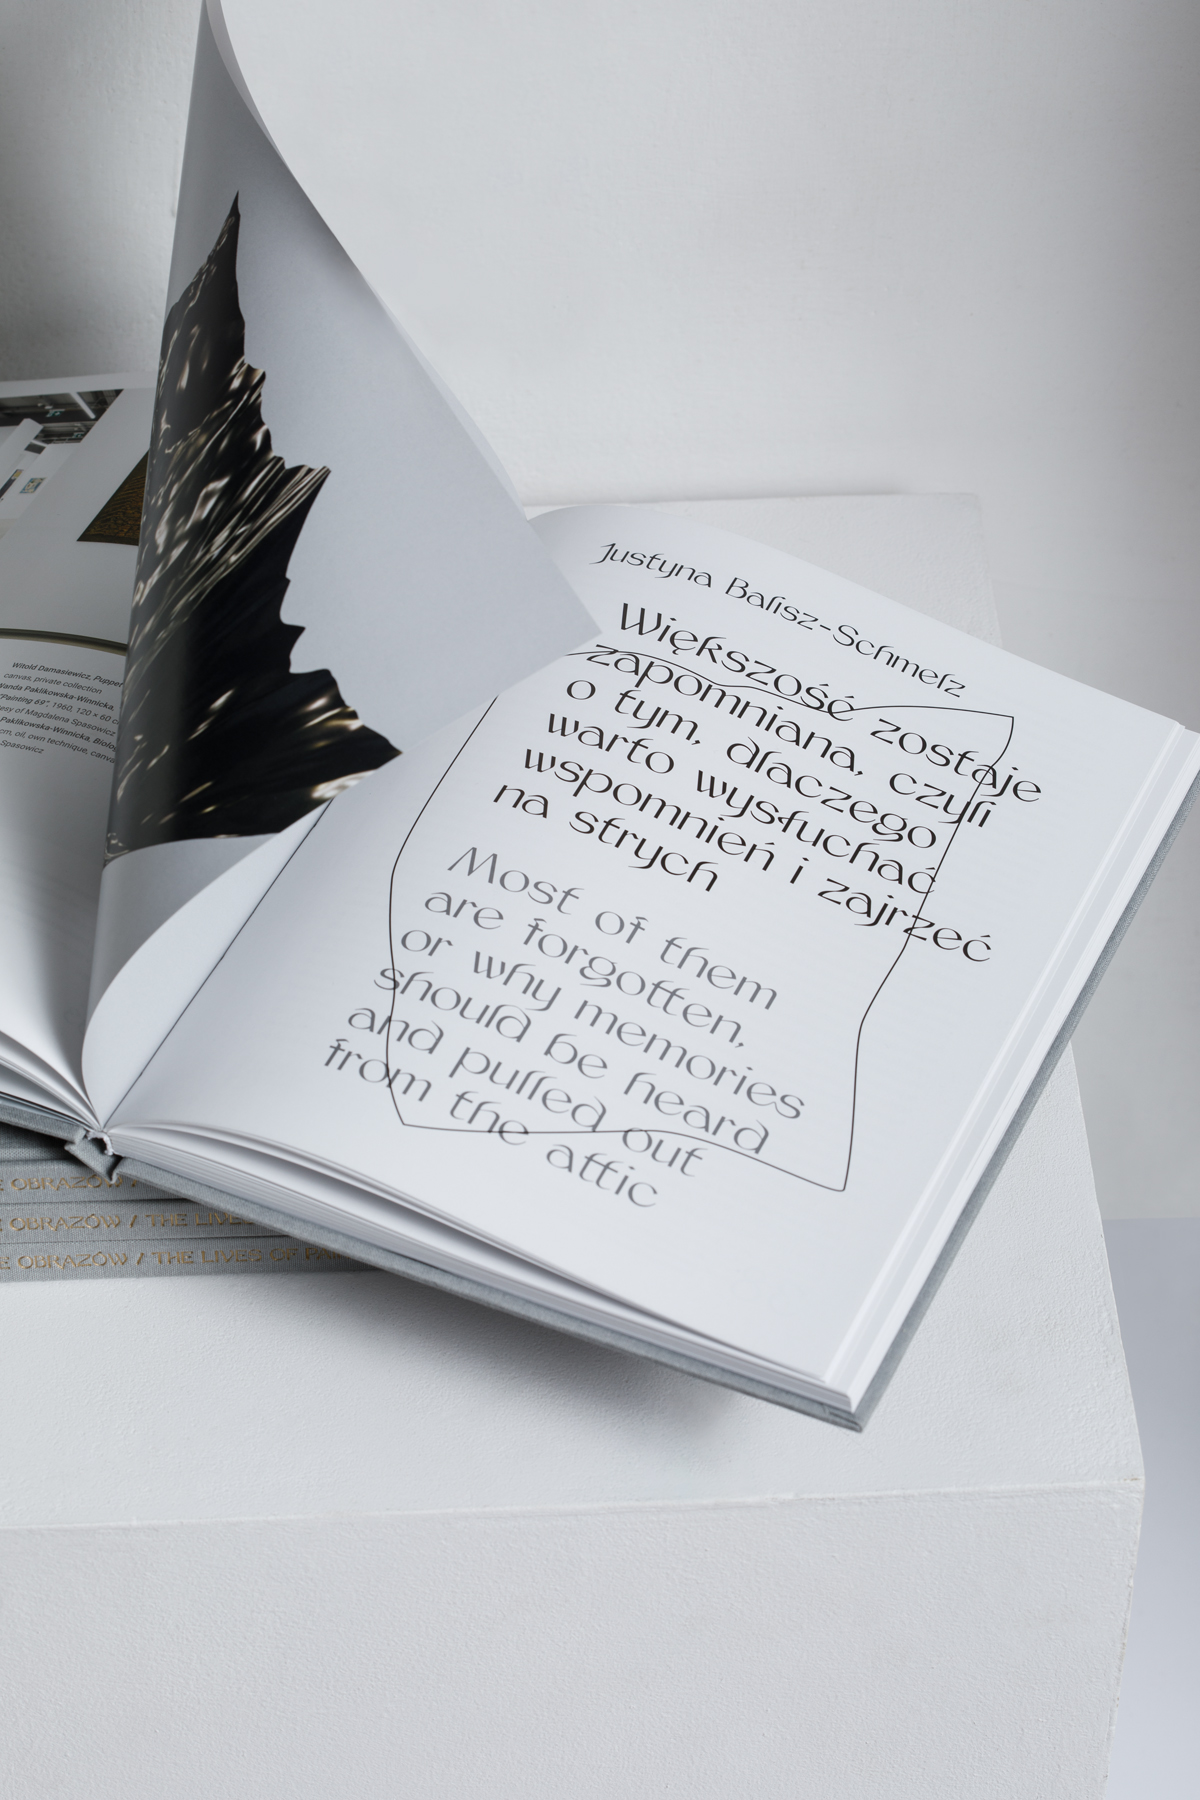 Witold Damasiewicz, Puppet
canvas, private collection
Wanda Paklikowska-Winnicka,
"Painting 69", 1960, 120 x 60
of Magdalena Spasowicz
Paklikowska-Winnicka,
cm, oil, own technique,
Spasowicz
Justyna Balisz-Schmelz
Większość zostaje
zapomniana, czyli
o tym, dlaczego
warto wysłuchać
wspomnień i zajrzeć
na strych
Most of them
are forgotten,
or why memories
should be heard
and pulled out
from the attic
E OBRAZÓW /
E OBRAZÓW / THE LIVES
E OBRAZÓW / THE LIVES OF